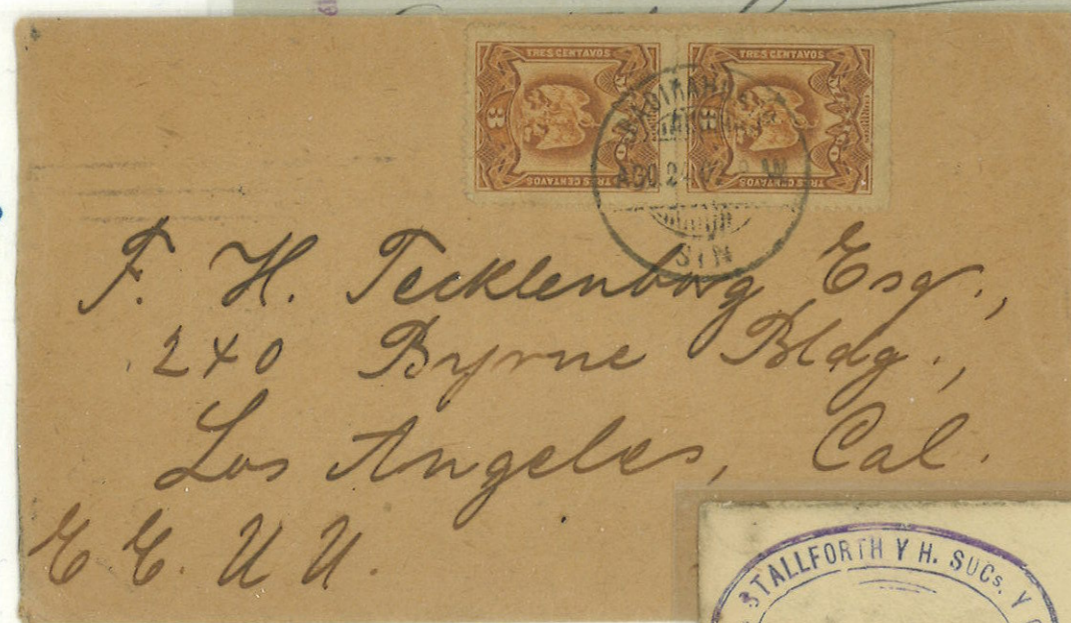 TRES CENTAVOS TRES CENTAVOS
3 3
TRES CENTAVOS TRES CENTAVOS
AGO 24
SIN
F. H. Tecklenborg Esq.,
240 Byrne Bldg.,
Los Angeles, Cal.
E. E. U. U.
STALLFORTH Y H. SUCs. Y